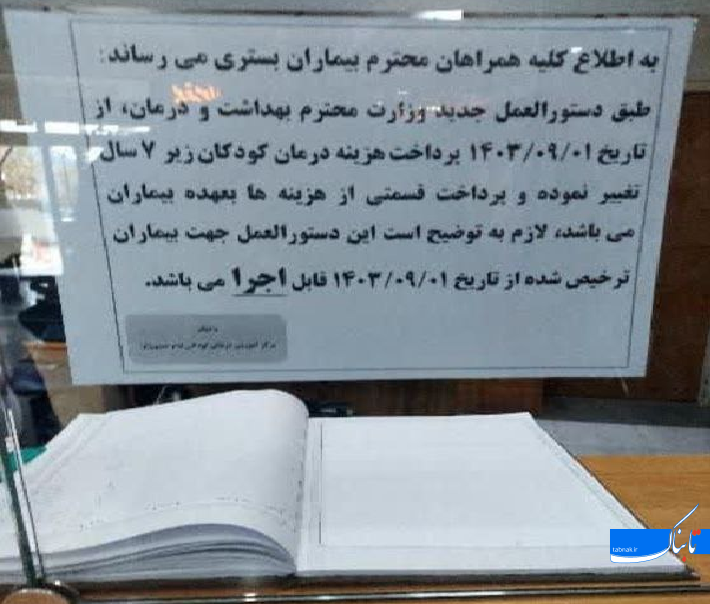 به اطلاع کلیه همراهان محترم بیماران بستری می رساند:
طبق دستورالعمل جدید وزارت محترم بهداشت و درمان، از
تاریخ ۱۴۰۳/۰۹/۰۱ پرداخت هزینه درمان کودکان زیر ۷ سال
تغییر نموده و پرداخت قسمتی از هزینه ها بعهده بیماران
می باشد، لازم به توضیح است این دستورالعمل جهت بیماران
ترخیص شده از تاریخ ۱۴۰۳/۰۹/۰۱ قابل اجرا می باشد.
مرکز آموزشی درمانی کودکان
تابناک
tabnak.ir